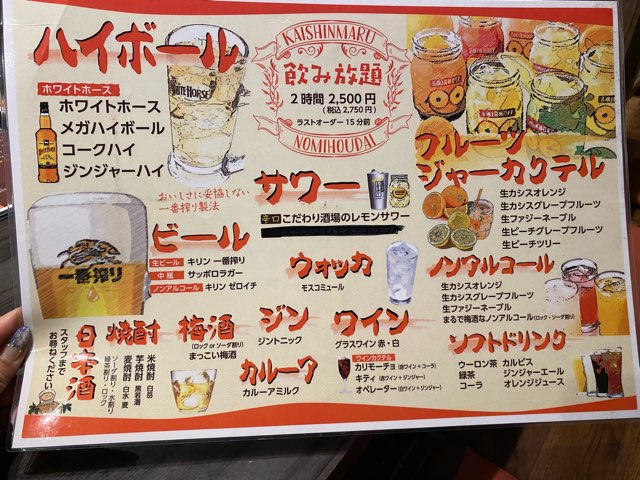 ハイボール
ホワイトホース
ホワイトホース
メガハイボール
コークハイ
ジンジャーハイ
WHITE HORSE
KAISHINMARU
飲み放題
2時間 2,500円
(税込 2,750円)
ラストオーダー 15分前
NOMIHOUDAI
フルーツ
ジャーカクテル
生カシスオレンジ
生カシスグレープフルーツ
生ファジーネーブル
生ピーチグレープフルーツ
生ピーチツリー
おいしさに妥協しない
一番搾り製法
一番搾り
ビール
生ビール キリン 一番搾り
中瓶 サッポロラガー
ノンアルコール キリン ゼロイチ
サワー
辛口 こだわり酒場のレモンサワー
ウォッカ
モスコミュール
ノンアルコール
生カシスオレンジ
生カシスグレープフルーツ
生ファジーネーブル
まるで梅酒なノンアルコール(ロック・ソーダ割り)
日本酒
スタッフまで
お尋ねください
焼酎
米焼酎 白岳
芋焼酎 黒若潮
麦焼酎
ソーダ割り・水割り
緑茶割り・ロック
梅酒
(ロック or ソーダ割り)
まっこい梅酒
ジン
ジントニック
カルーア
カルーアミルク
ワイン
グラスワイン 赤・白
ワインカクテル
カリモーチョ (赤ワイン+コーラ)
キティ (赤ワイン+ジンジャー)
オペレーター (白ワイン+ジンジャー)
ソフトドリンク
ウーロン茶 カルピス
緑茶 ジンジャーエール
コーラ オレンジジュース